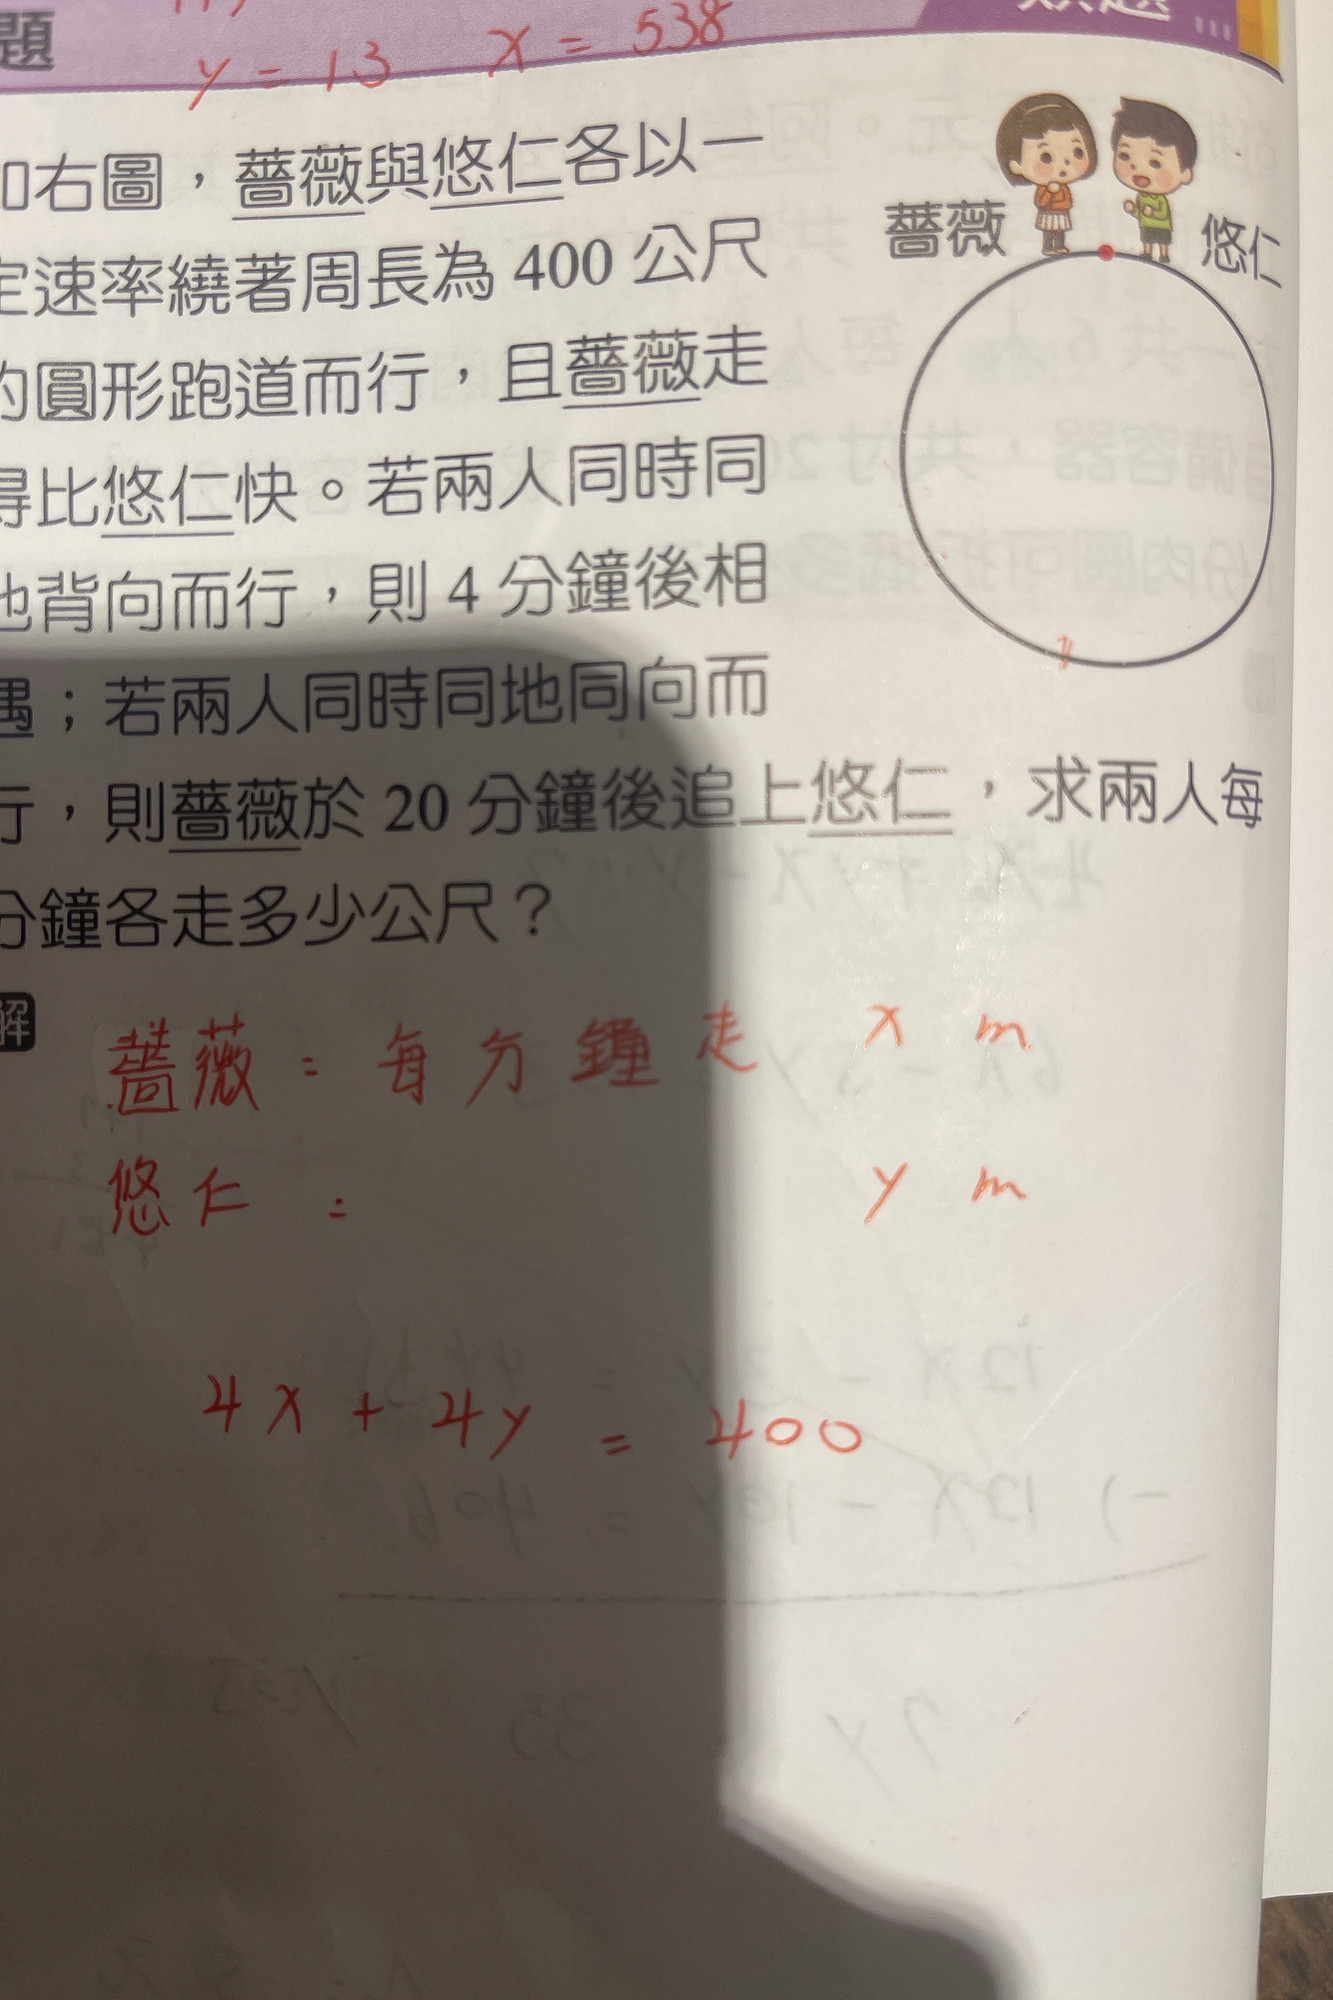 題
y = 13 x = 538
如右圖,薔薇與悠仁各以一
定速率繞著周長為 400 公尺
的圓形跑道而行,且薔薇走
得比悠仁快。若兩人同時同
地背向而行,則 4 分鐘後相
遇;若兩人同時同地同向而
行,則薔薇於 20 分鐘後追上悠仁,求兩人每
分鐘各走多少公尺?
薔薇
悠仁
解
薔薇:每分鐘走 x m
悠仁: y m
4x + 4y = 400